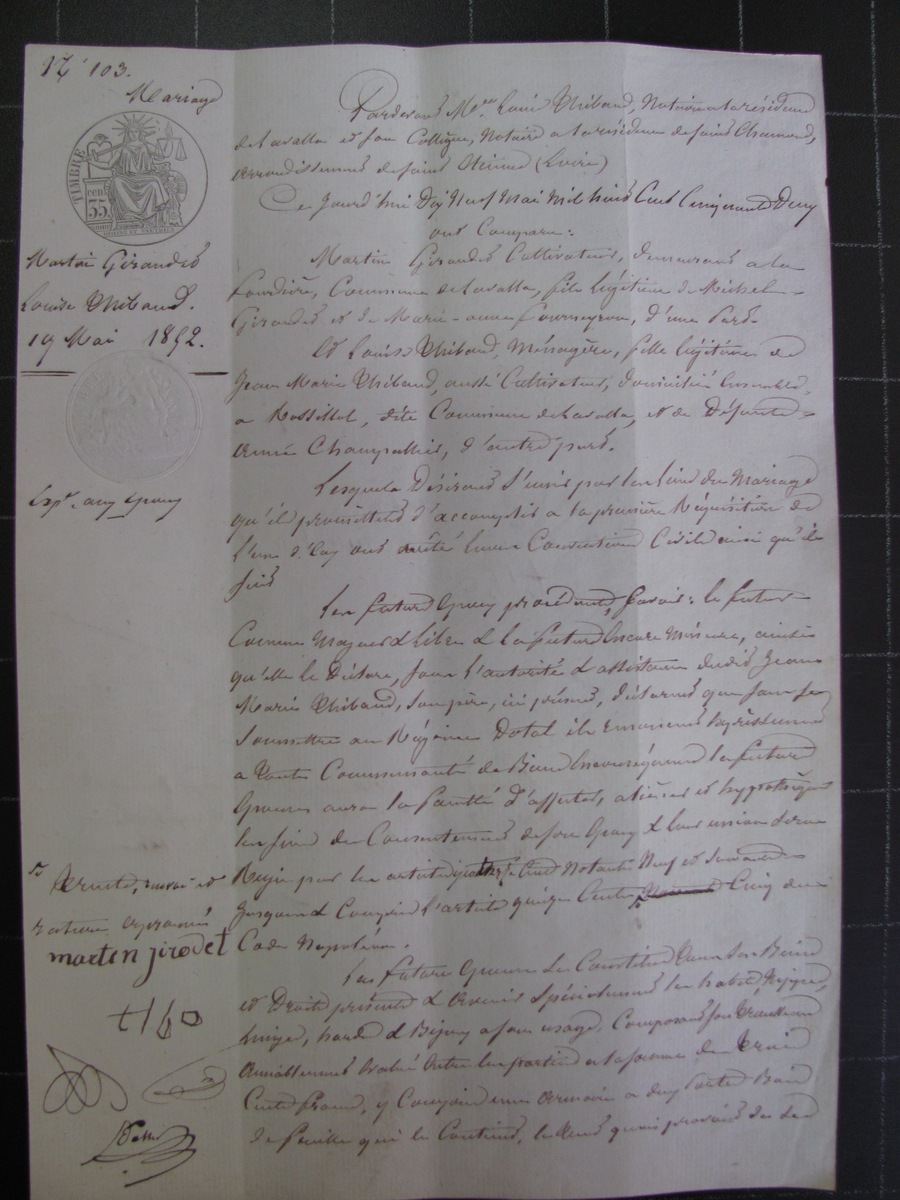 N° 103.
Mariage
TIMBRE
35 cen
Martin Giraudet
Louise Thibaud.
19 Mai 1852.
Exp. aux Epoux
Pardevant Me Louis Thibaud, Notaire à la résidence
de Lavalla et son Collègue, Notaire à la résidence de saint Chamond,
arrondissement de saint Etienne (Loire)
Ce jourd'hui Dix Neuf Mai Mil huit Cent Cinquante Deux
ont Comparu:
Martin Giraudet Cultivateur, demeurant à la
Commune de Lavalla, fils légitime de Michel
Giraudet et de Marie-anne fourneyron, d'une Part.
Et Louise Thibaud, Ménagère, fille légitime de
Jean Marie Thibaud, aussi Cultivateur, domiciliés Ensemble
a Rossillol, dite Commune de Lavalla, et de Défunte
Champallier, d'autre part.
Lesquels Désirant s'unir par les liens du Mariage
qu'ils promettent d'accomplir a la première Réquisition de
l'un d'Eux ont arrêté leurs Conventions Civiles ainsi qu'il
suit
Les futurs Epoux procédant, Savoir: le futur
Comme Majeur & libre & la future Encore Mineure, ainsi
qu'elle le Déclare, sous l'autorité & assistance dudit Jean
Marie Thibaud, son père, ici présent, déclarent que sans se
soumettre au Régime Dotal ils renoncent Expressément
a toute Communauté de Biens Enconséquence la future
Epouse aura la faculté d'affecter, aliéner et hypothéquer
les siens du Consentement de son Epoux & leur union sera
Régie par les articles quatorze Cent Notante Neuf et suivants
jusques & Compris l'article quinze Cent Cinq du
Code Napoléon.
La future Epouse se Constitue tous ses Biens
et Droits présents & avenir spécialement les habits, Nippes,
Linges, hardes & Bijoux a son usage, Composant son Trousseau
amiablement Evalué Entre les parties a la somme de trois
Cents francs, y Compris une armoire a deux portes Bois
de feuille qui le Contient, le tout provenant de ses
rature approuvés
marten jirodet